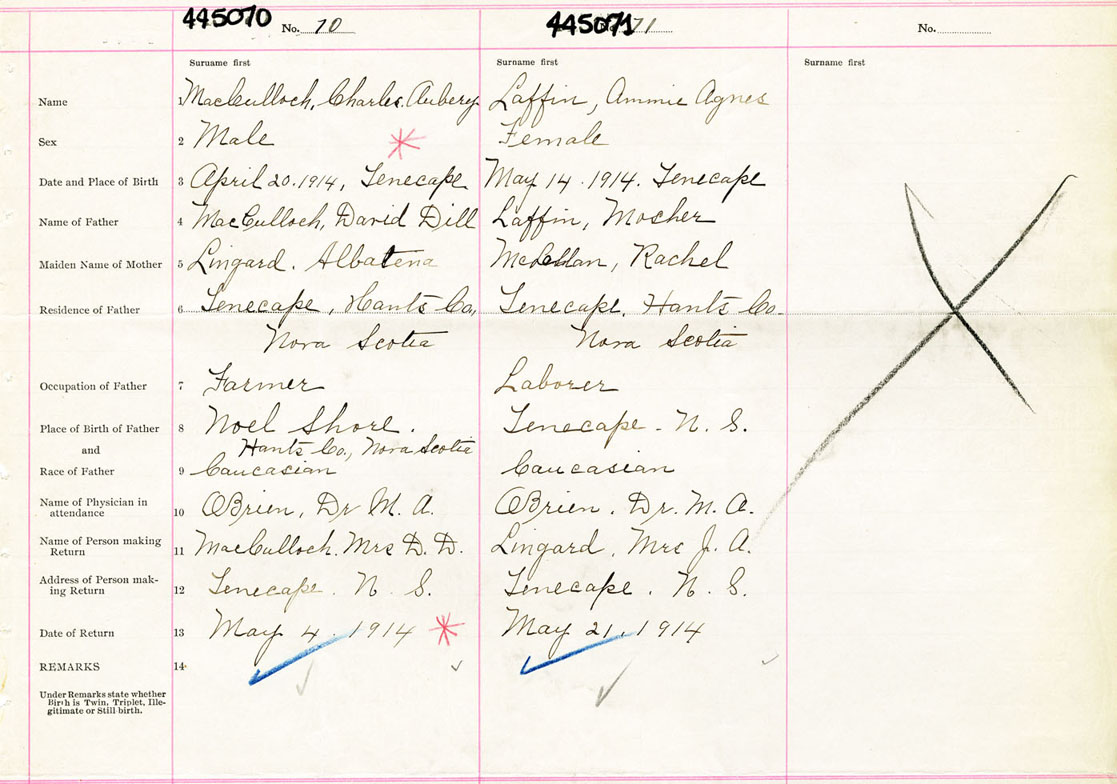 445070 No. 10
445071 71
No.
Suruame first
Surname first
Surname first
Name 1 MacCulloch, Charles. Aubery Laffin, Ammie Agnes
Sex 2 Male Female
Date and Place of Birth 3 April 20. 1914, Tenecape May 14. 1914. Tenecape
Name of Father 4 MacCulloch, David Dill Laffin, Mosher
Maiden Name of Mother 5 Lingard. Albatena McLellan, Rachel
Residence of Father 6 Tenecape, Hants Co, Tenecape. Hants Co.
Nova Scotia Nova Scotia
Occupation of Father 7 Farmer Laborer
Place of Birth of Father 8 Noel Shore. Tenecape - N. S.
and Hants Co., Nova Scotia
Race of Father 9 Caucasian Caucasian
Name of Physician in
attendance 10 OBrien, Dr M. A. OBrien. Dr. M. A.
Name of Person making
Return 11 MacCulloch. Mrs D. D. Lingard, Mrs J. A.
Address of Person mak-
ing Return 12 Tenecape. N. S. Tenecape. N. S.
Date of Return 13 May 4. 1914 May 21. 1914
REMARKS 14
Under Remarks state whether
Birth is Twin, Triplet, Ille-
gitimate or Still-birth.